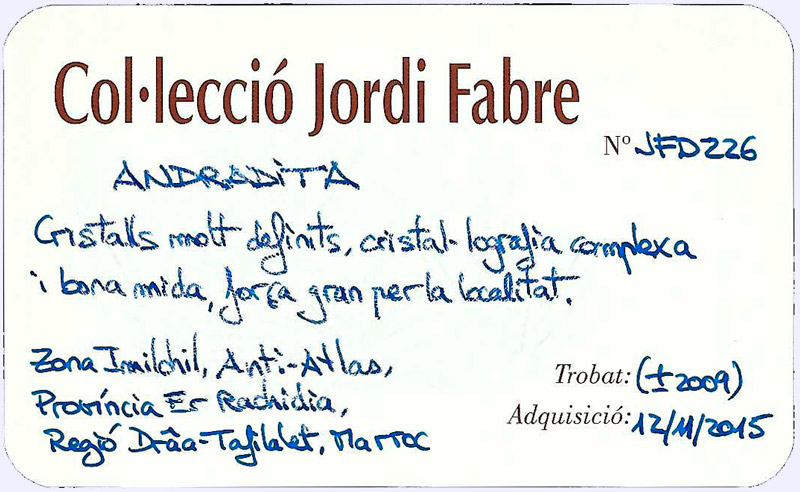 Col·lecció Jordi Fabre
Nº JFD226
ANDRADITA
Cristalls molt definits, cristal·lografia complexa
i bona mida, força gran per la localitat.
Zona Imilchil, Anti-Atlas,
Província Er Rachidia,
Regió Drâa-Tafilalet, Marroc
Trobat: (±2009)
Adquisició: 12/11/2015